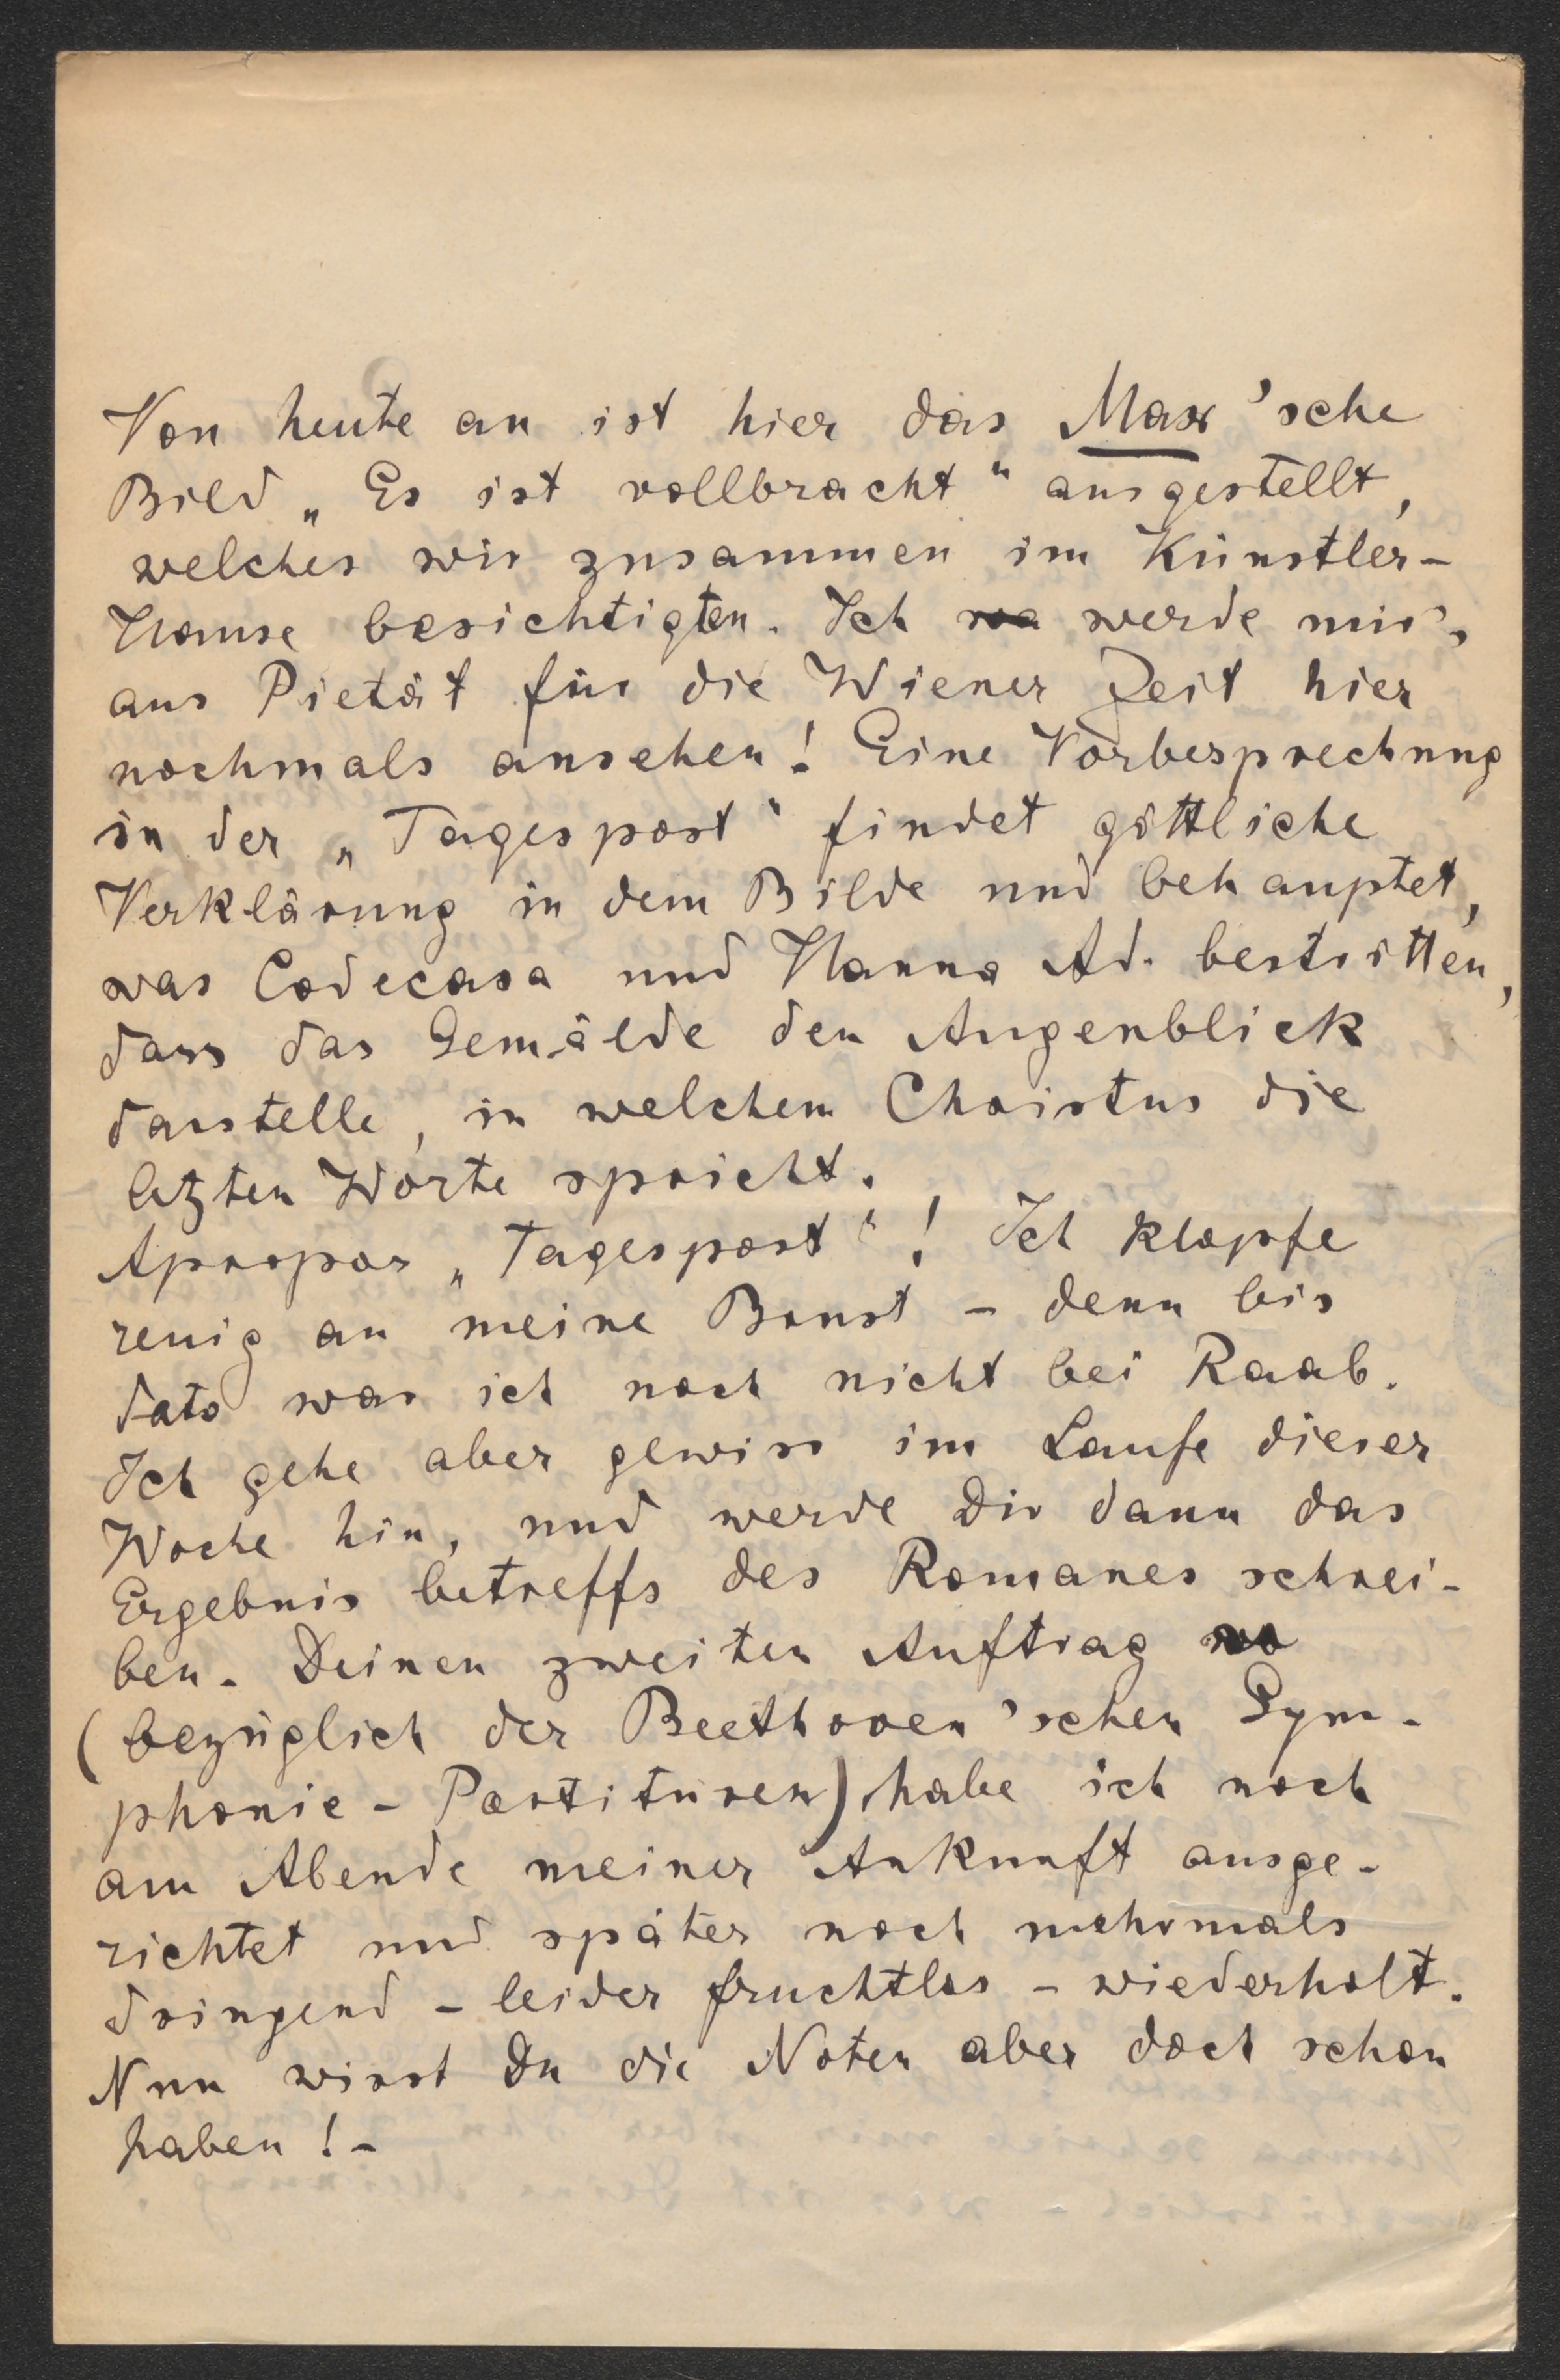 Von heute an ist hier das Max'sche
Bild „Es ist vollbracht“ ausgestellt,
welches wir zusammen im Künstler-
Hause besichtigten. Ich wa werde mir's
aus Pietät für die Wiener Zeit hier
nochmals ansehen! Eine Vorbesprechnung
in der „Tagespost“ findet göttliche
Verklärung in dem Bilde und behauptet,
was Codecasa und Hanna Ad. bestritten,
dass das Gemälde den Augenblick
darstelle, in welchem Christus die
letzten Worte spricht.
Apropos „Tagespost“! Ich klopfe
reuig an meine Brust – denn bis
dato war ich noch nicht bei Raab.
Ich gehe aber gewiss im Laufe dieser
Woche hin, und werde Dir dann das
Ergebnis betreffs des Romanes schrei-
ben. Deinen zweiten Auftrag
(bezüglich der Beethoven'schen Sym-
phonie-Partituren) habe ich noch
am Abende meiner Ankunft ausge-
richtet und später noch mehrmals
dringend – leider fruchtlos – wiederholt.
Nun wirst Du die Noten aber doch schon
haben! –